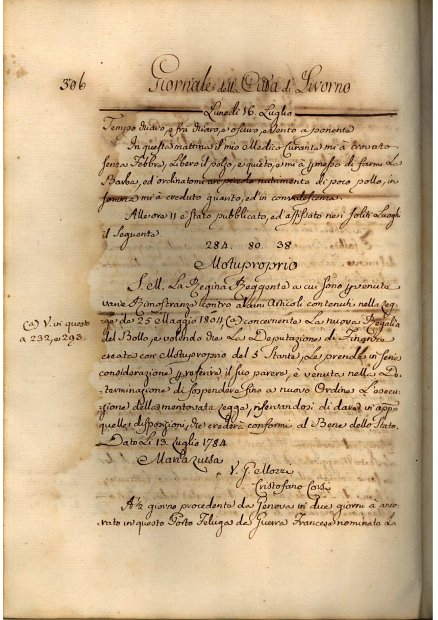 306 Giornale della Città di Livorno
Lunedì 16. Luglio
Tempo chiaro, e fra chiaro, e oscuro, e vento a ponente
In questa mattina il mio Medico Curante mi à trovato
senza Febbra, libero il polso, e quieto, e mi à permesso di farmi La
Barba, ed'ordinatomi un piccolo nutrimento di poco pollo, in
somma mi à creduto quanto, ed'in convalescenza.
Alle ore 11 è stato pubblicato, ed'affissato nei soliti Luoghi
il sequente
284. 80. 38
Motuproprio
S. M. La Regina Reggente a cui sono pervenute
varie Rimostranze contro alcuni Articoli contenuti nella Leg-
ge de 25 Maggio 1804 (a) concernente La nuova Regalia
(a) V. in questo
a 232, e 293.
del Bollo, e volendo che La Deputazione di Finanze
creata con Motuproprio del 5 stante, Le prenda in seria
considerazione e referirà il suo parere, è venuta nella De-
terminazione di sospendere fino a nuovo Ordine L'esecu-
zione della mentovata Legge, riservandosi di dare in
quelle disposizioni, che crederà conformi al Bene dello Stato.
Dato Li 13. Luglio 1784
Maria Luisa
V. G. Mozzi
Cristofano Corsi
A 1/2 giorno procedente da Genova in due giorni à anco-
rato in questo Porto Feluga da Guerra Francese nominata La